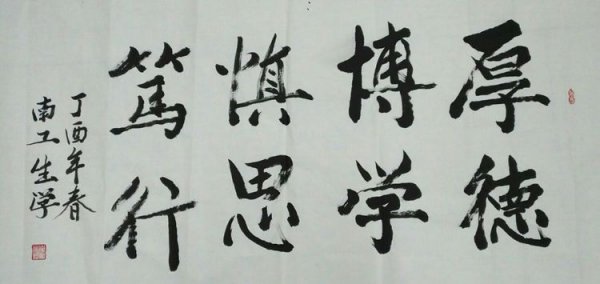 厚德
博学
慎思
笃行
丁酉年春
南工生学